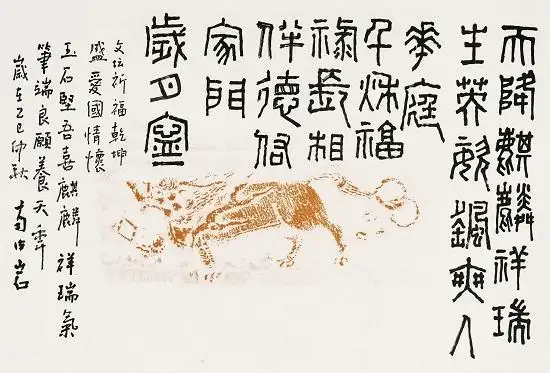 天降麒麟祥瑞
生英姿颯爽入
華庭
千秋福
祿長相
伴德佑
家門
歲月寧
文坛祈福乾坤
盛愛國情懷
玉石堅吾喜麒麟祥瑞氣
筆端良願養天年
歲在乙巳仲秋